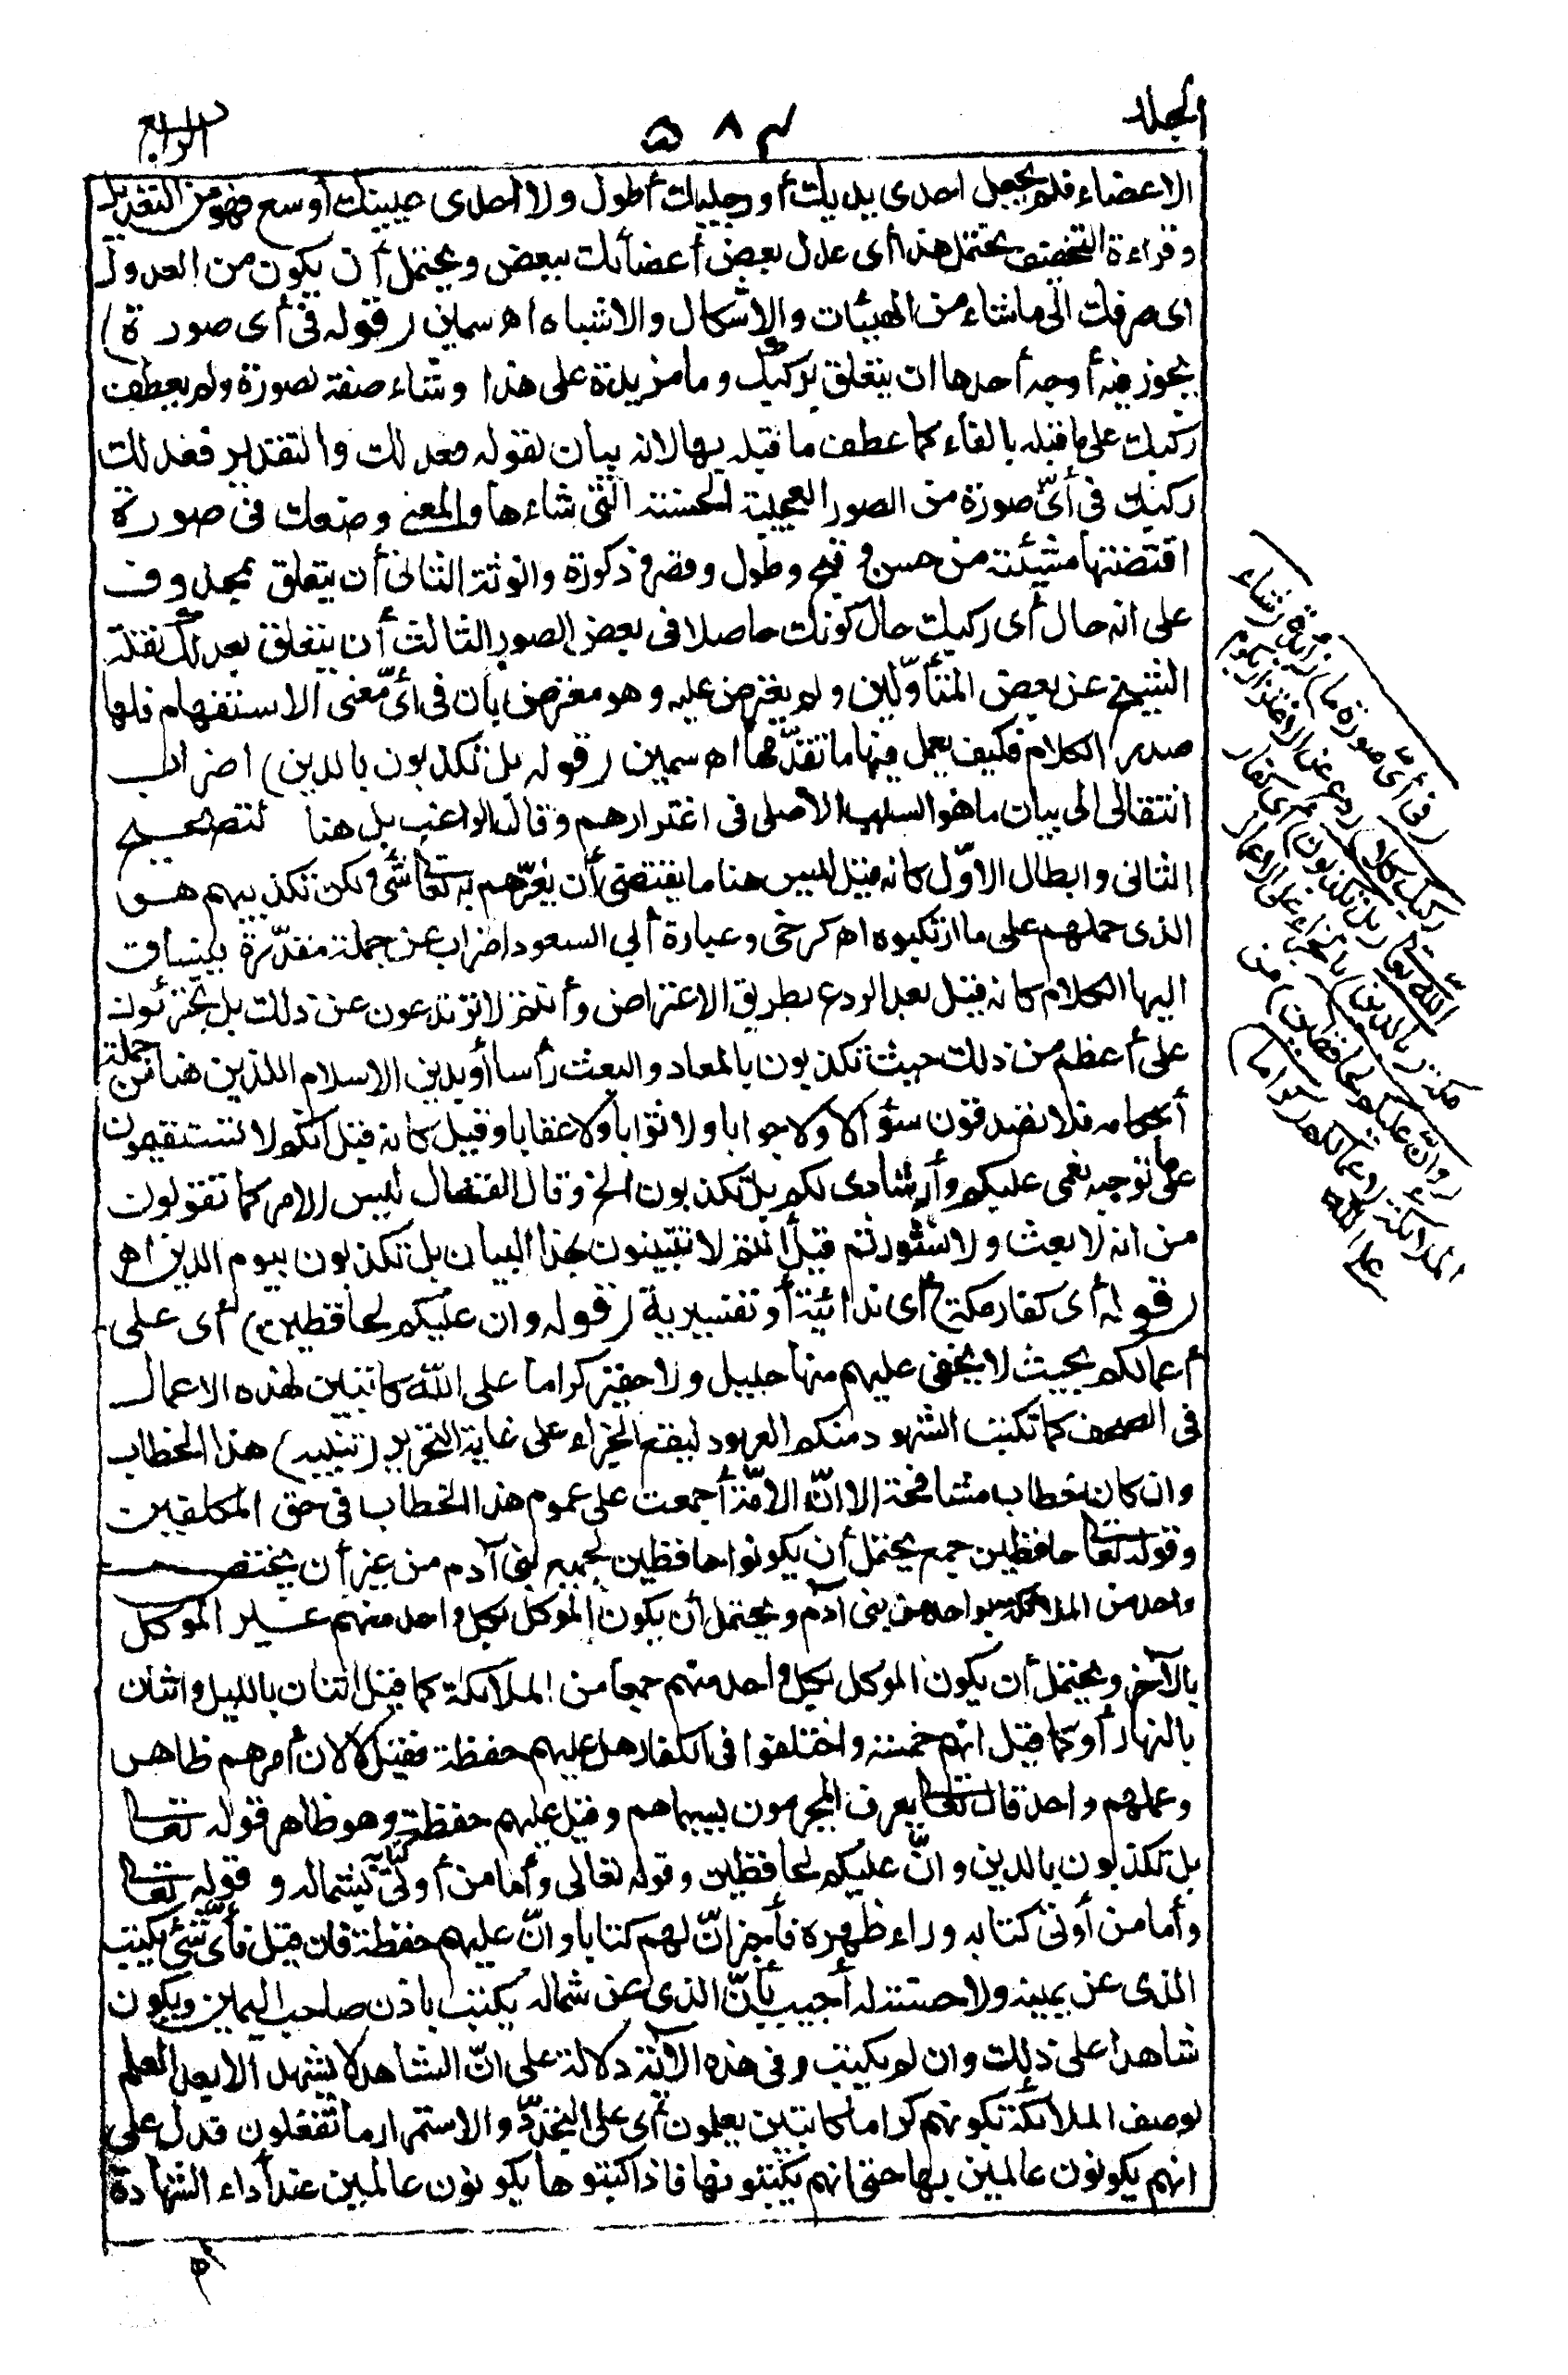 المجلد
٥٨٣
الرابع
الاعضاء فلم يجعل احدى يديك أو رجليك أطول ولا احدى عينيك أوسع فهو من التعديل
وقراءة التخفيف يحتمل هذا أى عدل بعض أعضائك ببعض ويحتمل أن يكون من العدول
اى صرفك الى ما شاء من الهيئات والاشكال والاشباه اه سمين (قوله فى أى صورة)
يجوز فيه أوجه أحدها ان يتعلق بركبك وما مزيدة على هذا وشاء صفة لصورة ولم يعطف
ركبك على ما قبله بالفاء كما عطف ما قبله بها لانه بيان لقوله فعدلك والتقدير فعدلك
ركبك فى أىّ صورة من الصور العجيبة الحسنة التى شاءها والمعنى وضعك فى صورة
اقتضتها مشيئته من حسن وقبح وطول وقصر وذكورة وانوثة الثانى أن يتعلق بمحذوف
على انه حال أى ركبك حال كونك حاصلا فى بعض الصور الثالث أن يتعلق بعدلك نقله
الشيخ عن بعض المتأوّلين ولم يعترض عليه وهو معترض بأن فى أىّ معنى الاستفهام فلها
صدر الكلام فكيف يعمل فيها ما تقدّمها اه سمين (قوله بل تكذبون بالدين) اضراب
انتقالى الى بيان ما هو السبب الأصلى فى اغترارهم وقال الراغب بل هنا لتصحيح
الثانى وابطال الاوّل كانه قيل ليس هنا ما يقتضى أن يغرّهم به تعالى شئ ولكن تكذيبهم هو
الذى حملهم على ما ارتكبوه اه كرخى وعبارة أبى السعود اضراب عن جملة مقدّرة ينساق
اليها الكلام كانه قيل بعد الردع بطريق الاعتراض وأنتم لا ترتدعون عن ذلك بل تجترئون
على أعظم من ذلك حيث تكذبون بالمعاد والبعث رأسا أو بدين الاسلام اللذين هما من جملة
أحكامه فلا تصدقون سؤالا ولا جوابا ولا ثوابا ولا عقابا وقيل كانه قيل انكم لا تستقيمون
على ما توجبه نعمى عليكم وأرشادى لكم بل تكذبون الخ وقال القفال ليس الامر كما تقولون
من انه لا بعث ولا نشور ثم قيل أنتم لا تتبينون بهذا البيان بل تكذبون بيوم الدين اه
(قوله أى كفار مكة) أى ندائية أو تفسيرية (قوله وان عليكم لحافظين) أى على
أعمالكم بحيث لا يخفى عليهم منها جليل ولا حقير كراما على الله كاتبين لهذه الاعمال
فى الصحف كما تكتب الشهود منكم العهود ليقع الجزاء على غاية التحرير (تنبيه) هذا الخطاب
وان كان خطاب مشافهة الا انّ الامّة أجمعت على عموم هذا الخطاب فى حق المكلفين
وقوله تعالى حافظين جمع يحتمل أن يكونوا حافظين لجميع بنى آدم من غير أن يختص
واحد من الملائكة بواحد من بنى آدم ويحتمل أن يكون الموكل بكل واحد منهم غير الموكل
بالآخر ويحتمل أن يكون الموكل بكل واحد منهم جمعا من الملائكة كما قيل اثنان بالليل واثنان
بالنهار أو كما قيل انهم خمسة واختلفوا فى الكفار هل عليهم حفظة فقيل لا لان أمرهم ظاهر
وعملهم واحد قال تعالى يعرف المجرمون بسيماهم وقيل عليهم حفظة وهو ظاهر قوله تعالى
بل تكذبون بالدين وانّ عليكم لحافظين وقوله تعالى وأما من أوتى كتابه بشماله وقوله تعالى
وأما من أوتى كتابه وراء ظهره فأخبر انّ لهم كتابا وانّ عليهم حفظة فان قيل فأىّ شئ يكتب
الذى عن يمينه ولا حسنة له أجيب بأنّ الذى عن شماله يكتب باذن صاحب اليمين ويكون
شاهدا على ذلك وان لم يكتب وفى هذه الآية دلالة على انّ الشاهد لا يشهد الا بعد العلم
لوصف الملائكة بكونهم كراما كاتبين يعلمون أى على التجدّد والاستمرار ما تفعلون فدل على
انهم يكونون عالمين بها حتى انهم يكتبونها فاذا كتبوها يكونون عالمين عند أداء الشهادة
(فى أىّ صورة ما) زائدة (شاء
ركبك كلا) ردع عن الاغترار بكرم
الله تعالى (بل تكذبون) أى كفار
مكة (بالدين) بالجزاء على الاعمال
(وانّ عليكم لحافظين) من
الملائكة لاعمالكم (كراما)
على الله